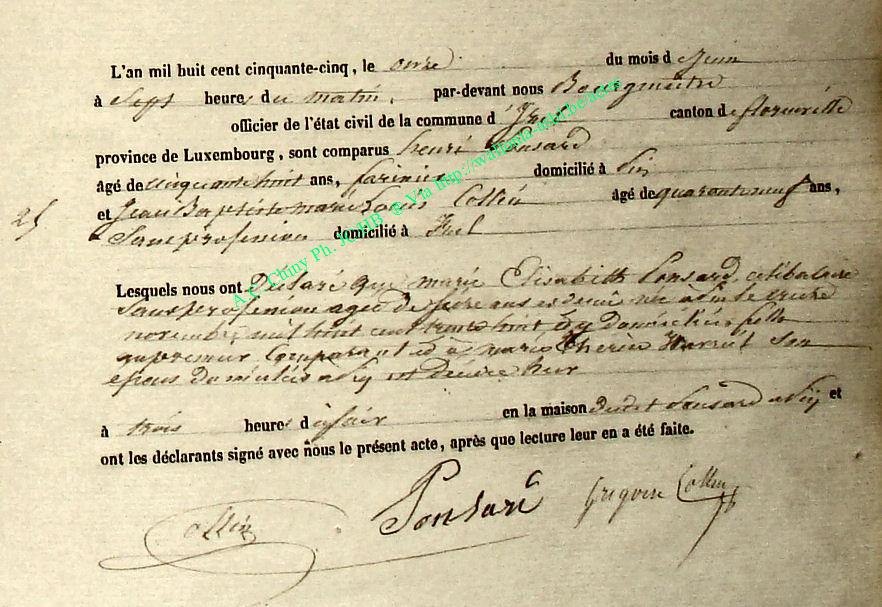 L'an mil huit cent cinquante-cinq, le onze du mois de Juin
à Sept heures du matin, par-devant nous Bourgmestre
officier de l'état civil de la commune d' canton de florenville
province de Luxembourg, sont comparus henri Ponsard
âgé de cinquante huit ans, domicilié à
et Jean Baptiste marie Louis Collin âgé de quarante neuf ans,
25
Sans profession domicilié à
Lesquels nous ont Déclaré que marie Elisabeth Ponsard, célibataire
Sans profession agée de seize ans et demi née à le treize
novembre mil huit cent trente huit y domiciliée fille
du premier Comparant et de marie Son
épouse domiciliés à est décédée hier
à trois heures du soir en la maison dudit Ponsard à et
ont les déclarants signé avec nous le présent acte, après que lecture leur en a été faite.
Collin Ponsard Grégoire Collin
A.E. Chiny Ph. JC HB @ Via http://wallonia-asbl.be/actes